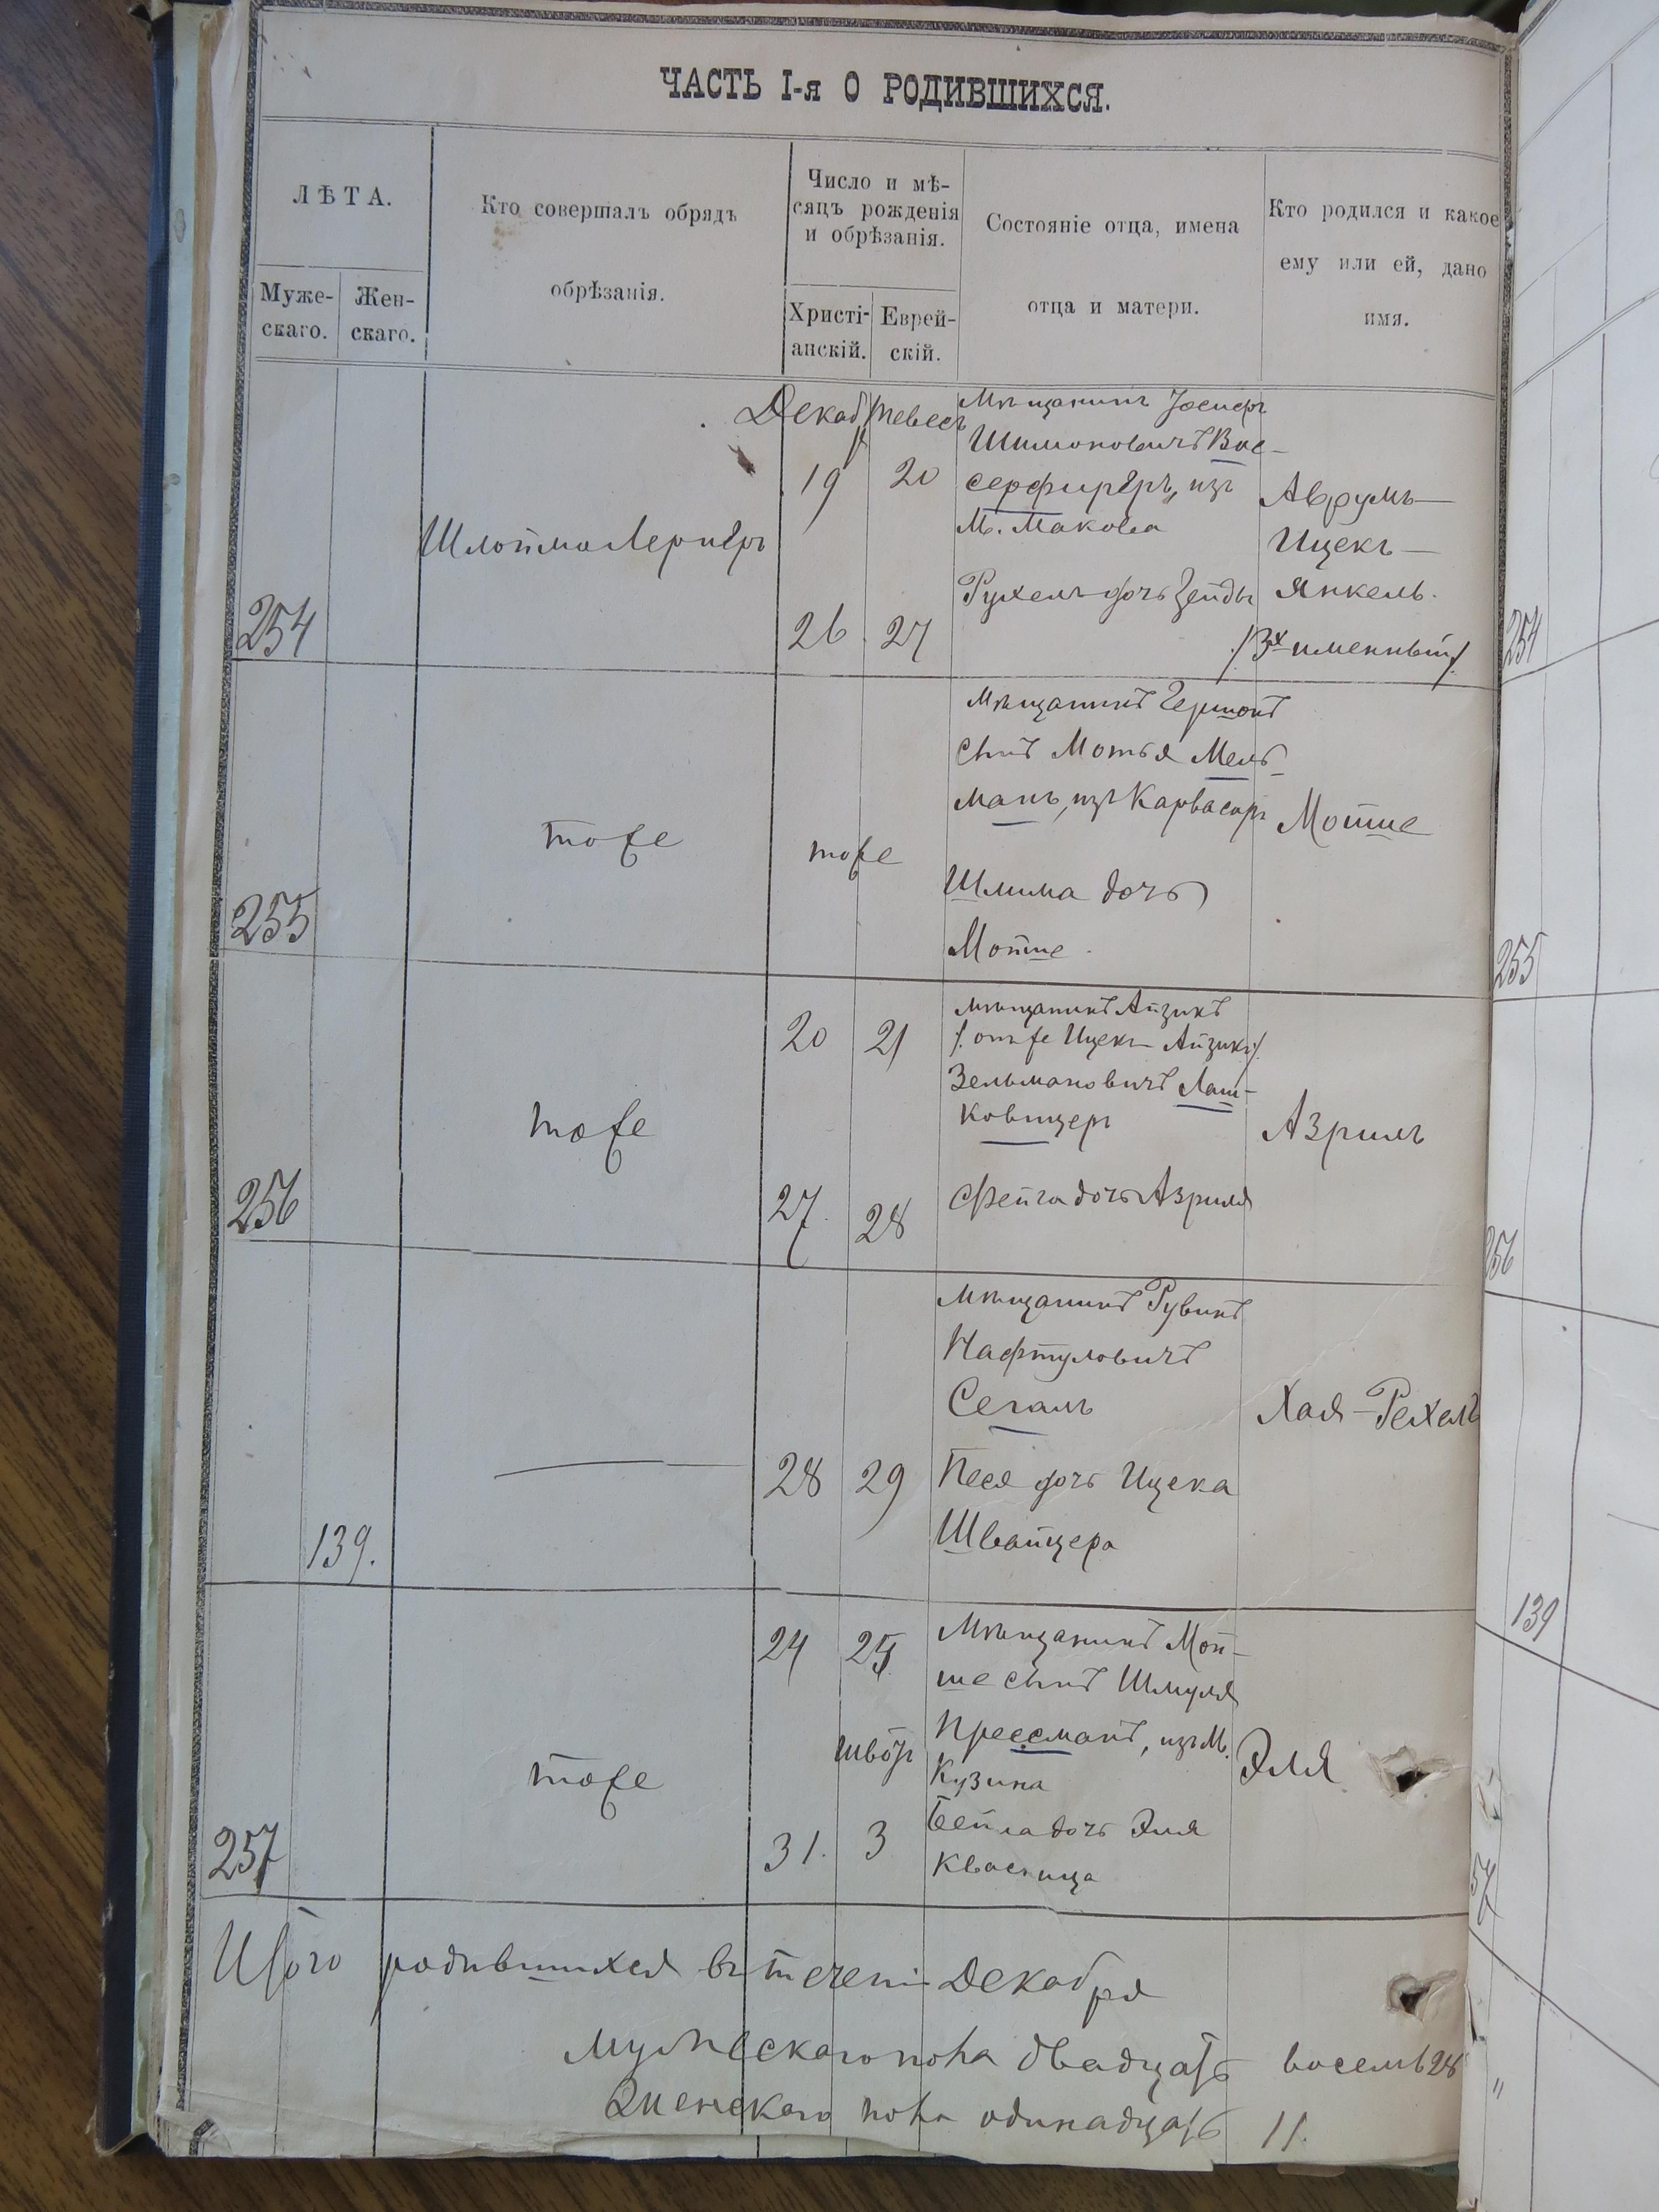 ЧАСТЬ I-я О РОДИВШИХСЯ.
ЛѢТА.
Муже-
скаго.
Жен-
скаго.
Кто совершалъ обрядъ
обрѣзанія.
Число и мѣ-
сяцъ рожденія
и обрѣзанія.
Христі-
анскій.
Еврей-
скій.
Состояніе отца, имена
отца и матери.
Кто родился и какое
ему или ей, дано
имя.
254
Шлойма Лернеръ
Декабр
Тевесъ
19
20
26
27
Мѣщанинъ Іосифъ
Шимоновичъ Вас-
серфиреръ, изъ
М. Макова
Рухель дочь Зейды
Аврумъ-
Ицекъ-
Янкель.
/3х именный/
254
255
тоже
тоже
Мѣщанинъ Гершонъ
сынъ Мотья Мель-
манъ, изъ Карвасаръ
Шлима дочь
Мойше
Мойше
255
256
тоже
20
21
27.
28
Мѣщанинъ Айзикъ
/: онъ же Ицекъ-Айзикъ :/
Зельмановичъ Лаш-
ковицеръ
Фейга дочь Азриля
Азриль
256
139.
28
29
Мѣщанинъ Рувинъ
Нафтуловичъ
Сегаль
Песя дочь Ицека
Швайцера
Хая-Рехель
139
257
тоже
24
25
Швотъ
31.
3
Мѣщанинъ Мой-
ше сынъ Шмуля
Прессманъ, изъ М.
Кузина
Бейла дочь Эля
Квасница
Эля
57
Итого родившихся въ течени Декабря
мужескаго пола двадцать восемь 28
Женскаго пола одинадцать 11.
"